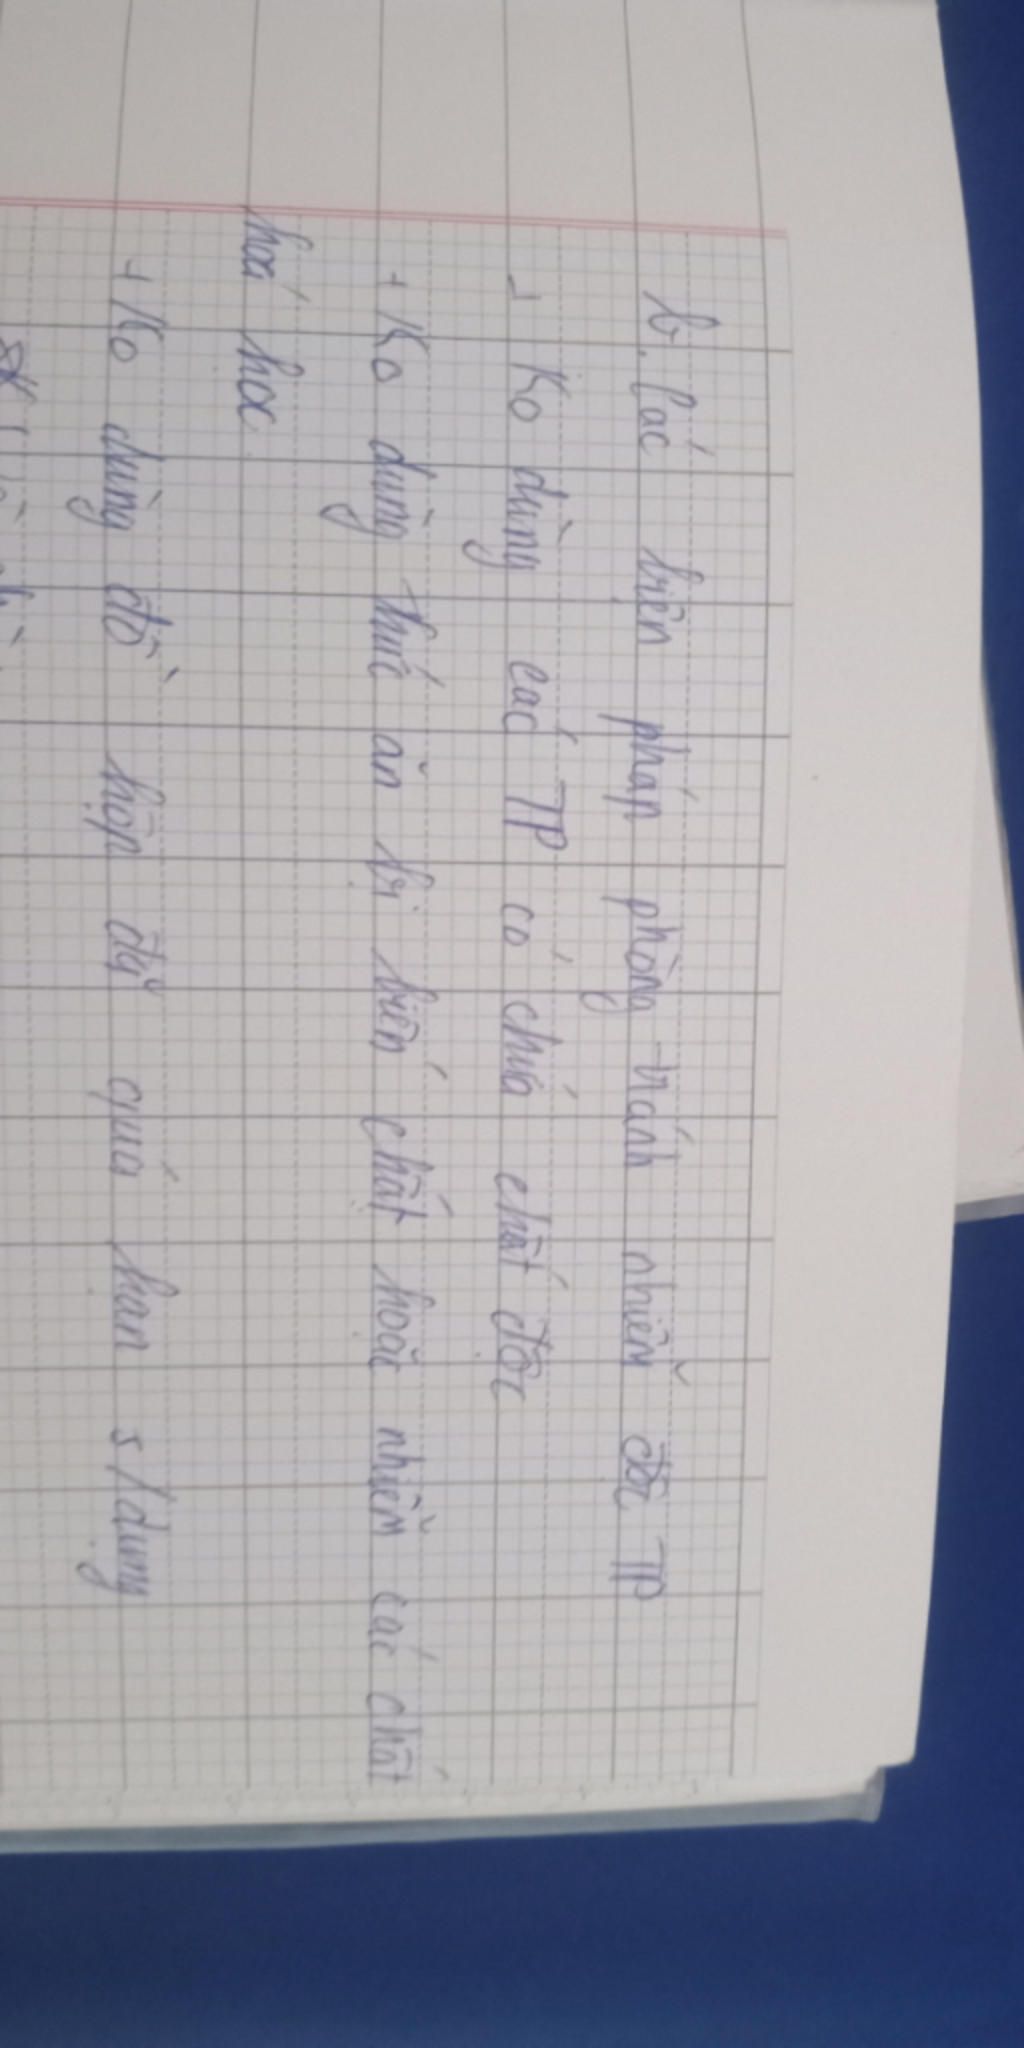 b. Các biện pháp phòng tránh nhiễm độc TP
+ Ko dùng các TP có chứa chất độc
+ Ko dùng thức ăn bị biến chất hoặc nhiễm các chất
hoá học
+ Ko dùng đồ hộp đã quá hạn s/dụng